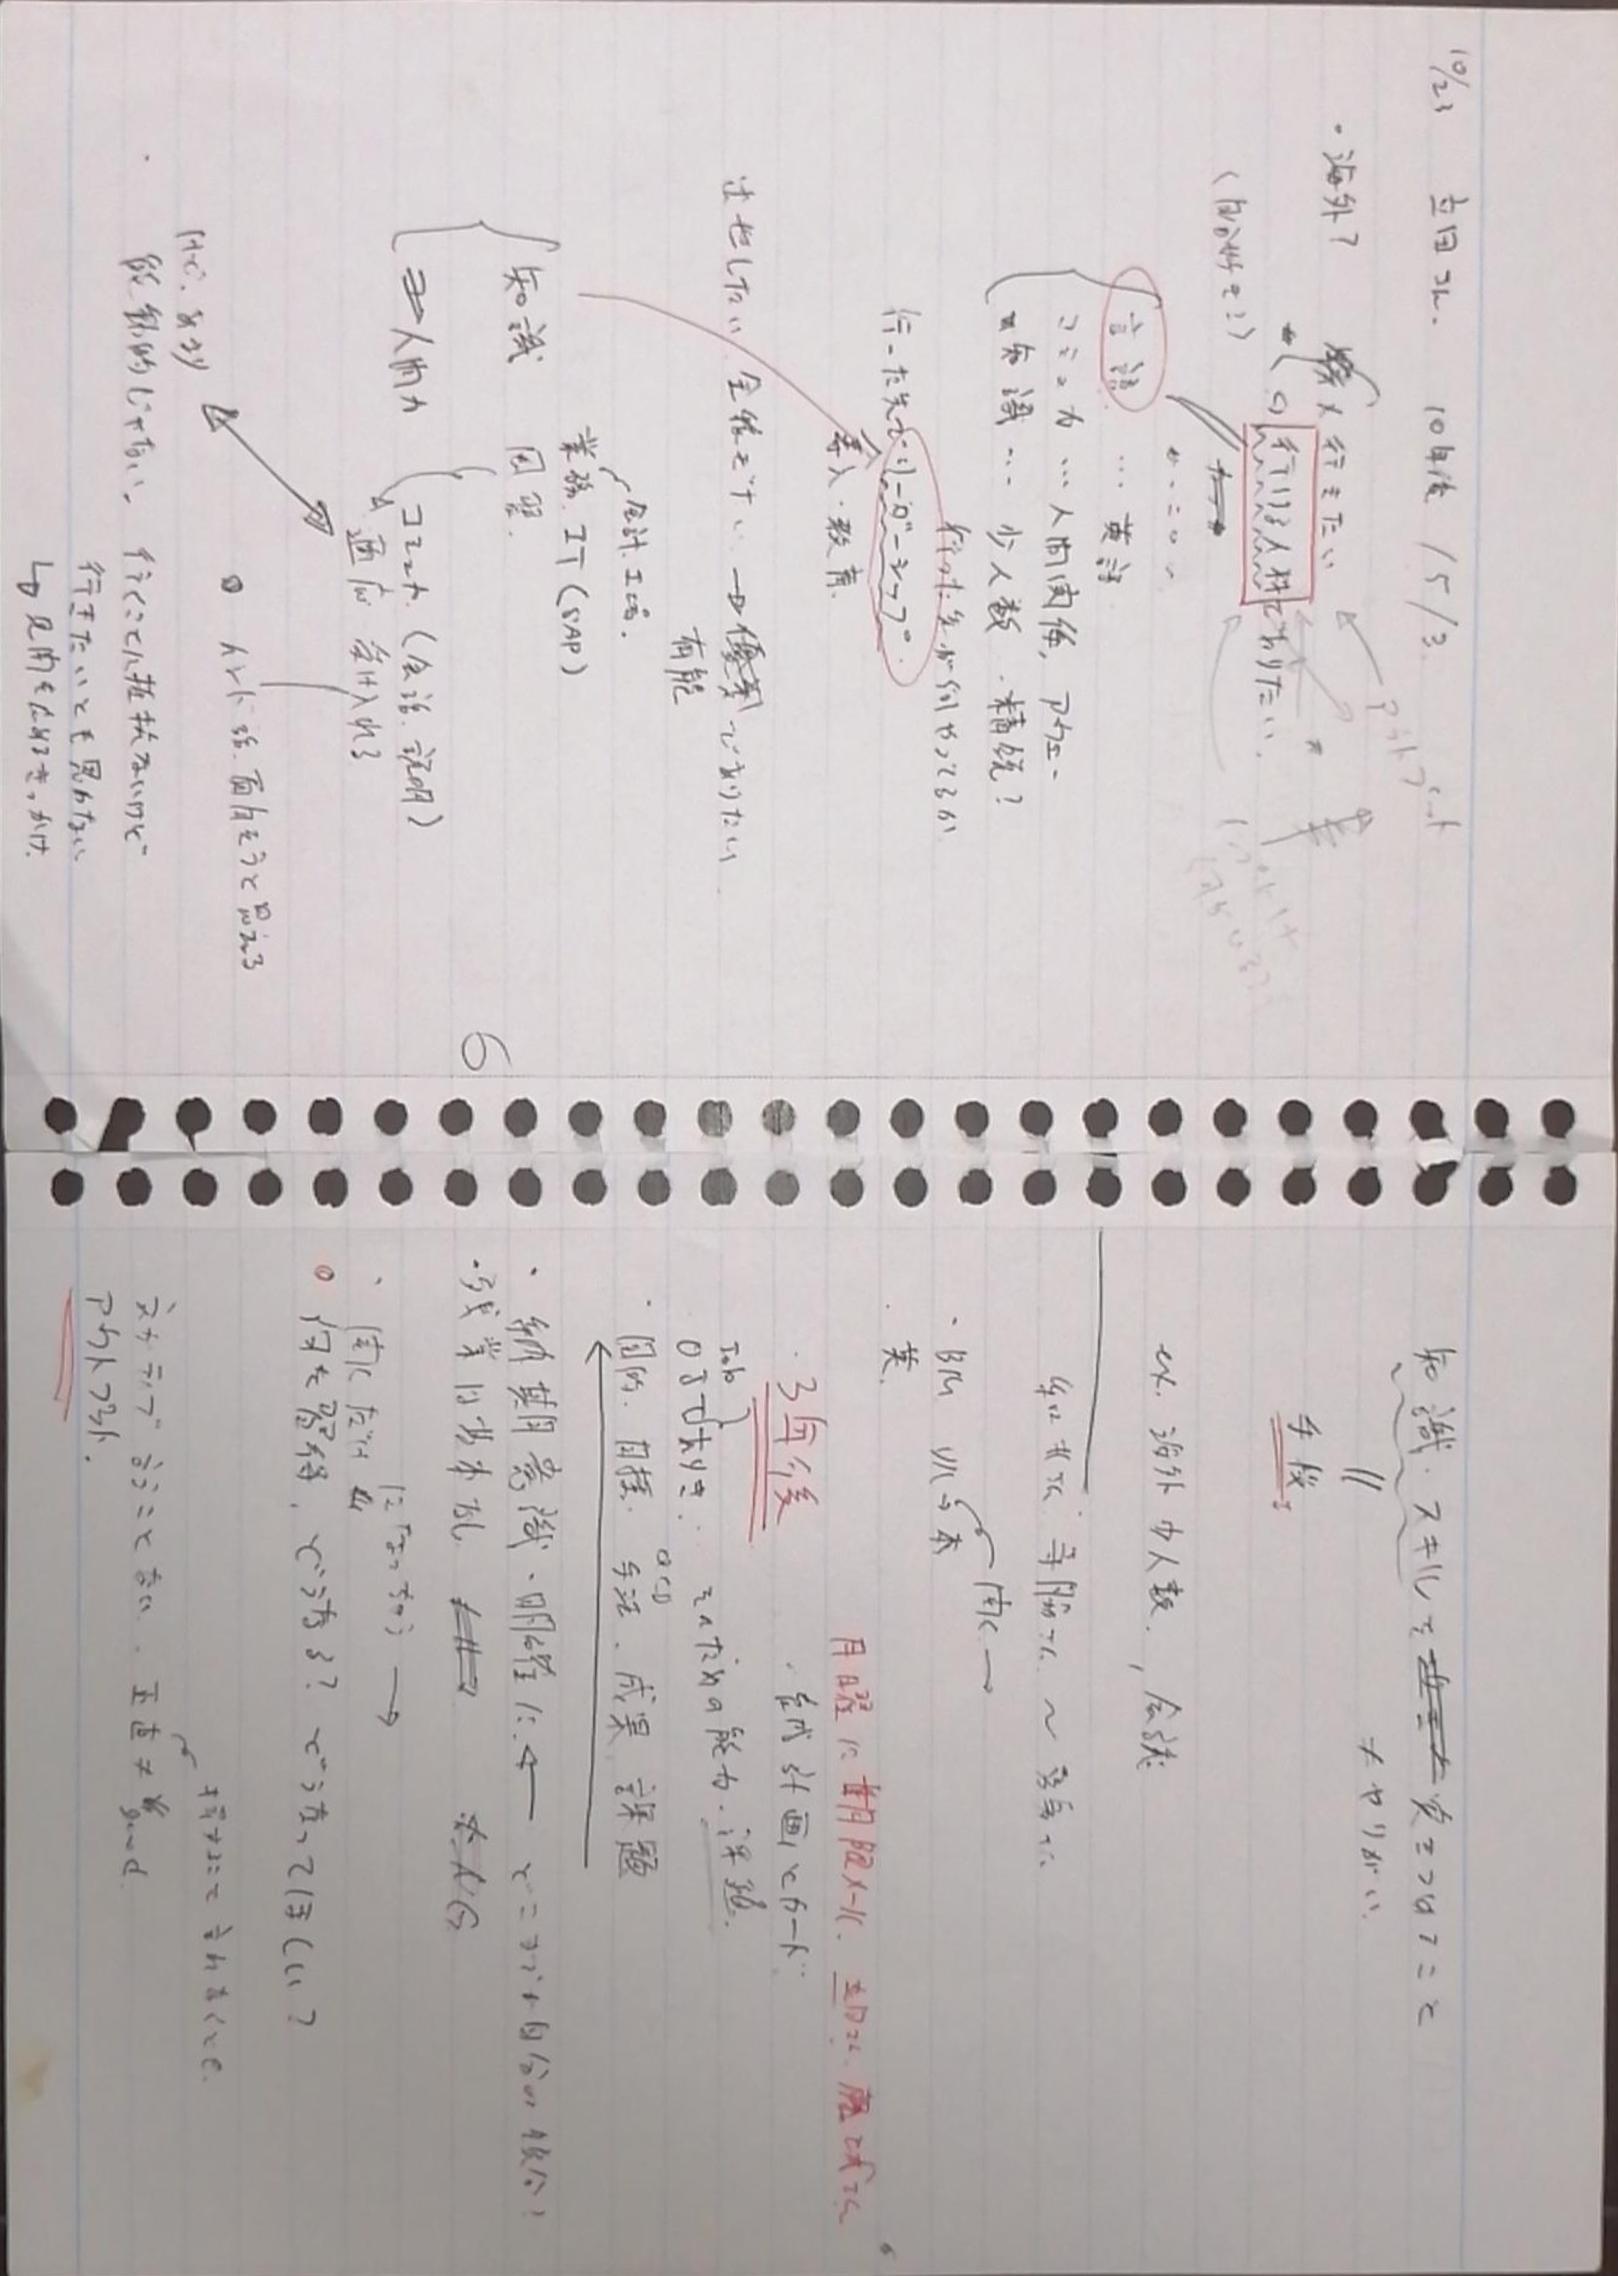 10/23 立田さん. 10年後 / 5 / 3
アウトプット
・海外? 行きたい
行ける人材でありたい.
(自分好き?)
言語 … 英語
コミュ力 … 人間関係, アウェー
知識 … 少人数・精鋭?
行った先が何やってるか
行った先でリーダーシップ
導入・教育.
出世したい 金稼ぎたい → 優秀でありたい
有能
会計.工場.
業務. IT (SAP)
知識 因習.
6
人間力 コミュ力. (会話. 説明)
適応 受け入れる
インド 面白そうと思える
けど. あまり
能動的じゃない. 行くことに抵抗ないけど
行きたいとも思わない
↳ 見聞を広めるきっかけ.
知識・スキルを 突きつめること
≠ やりがい.
||
手段.
ex. 海外 少人数.,
聞く →
・BM → 本
・英.
月曜に期限メール. 立田さん.
・3年後
・計画とカード
Job
OJTありき. そのための能力・課題.
QCD
・目的. 目標. 手法. 成果. 課題
・納期意識・明確に. ← どこまでが自分の
・残業は基本なし NG
になっちゃう →
・聞くだけ
○ 何を習得. どうなる? どうなってほしい?
言わなくとも.
ネガティブ 言うことない. 正直 ≠ good.
アウトプット.